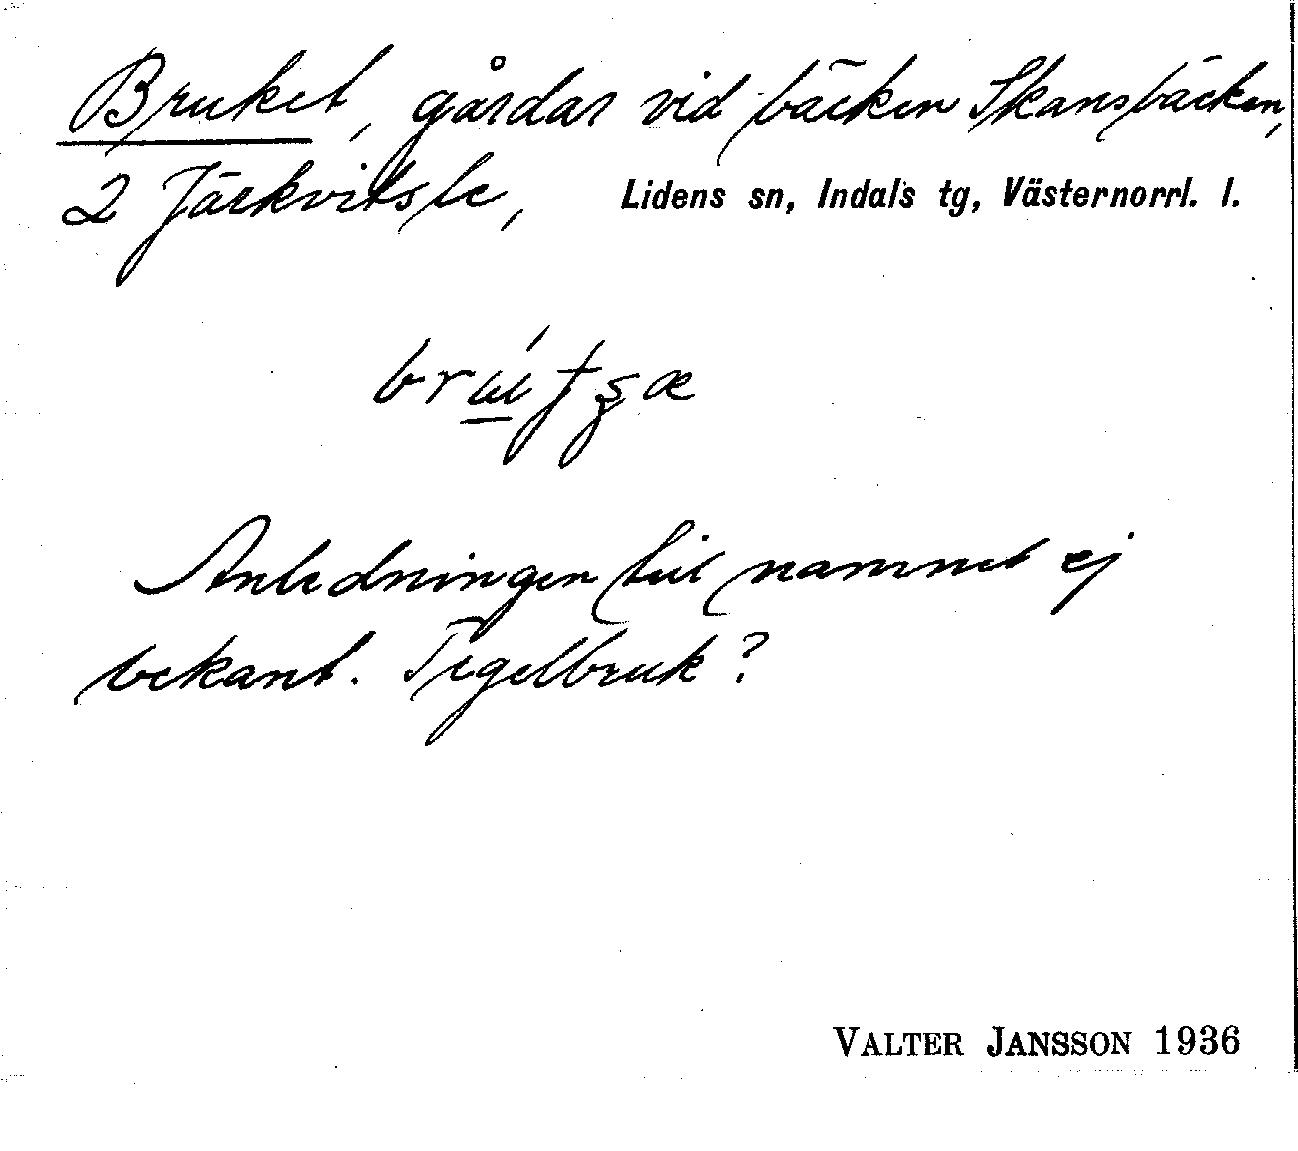 Bruket, gårdar vid bäcken Skansbäcken,
2 Järkvitsle, Lidens sn, Indals tg, Västernorrl. l.
Anledningen till namnet ej
bekant. Tegelbruk?
VALTER JANSSON 1936